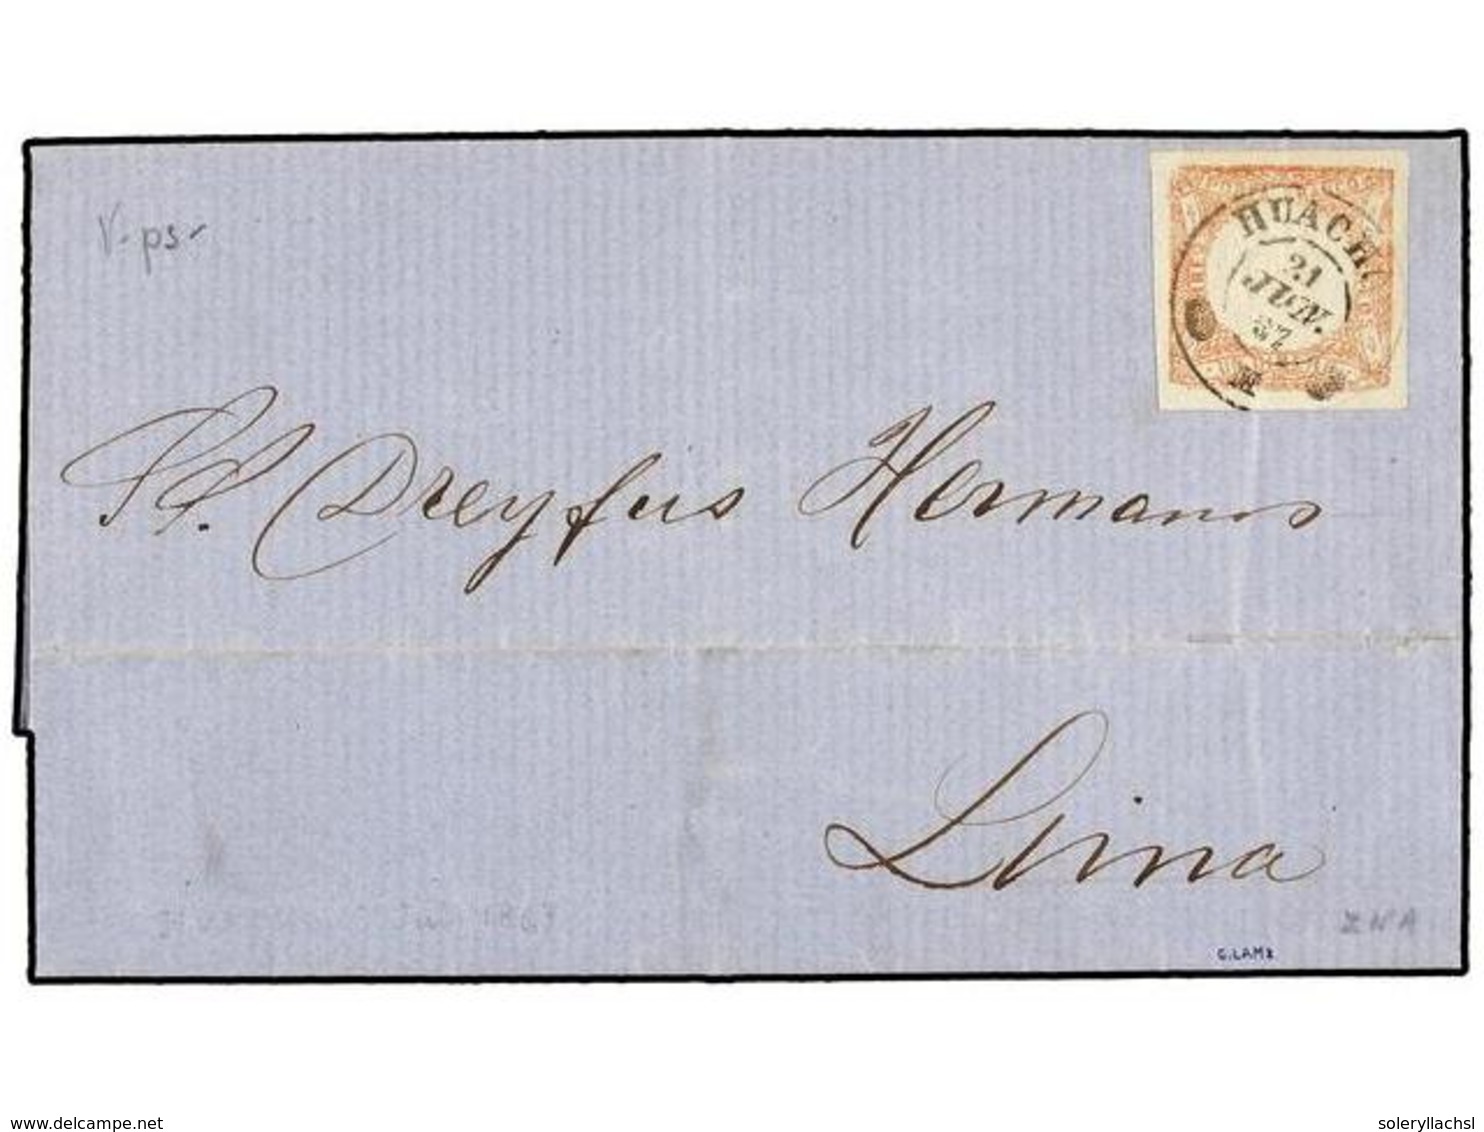 V. ps-
HUACH
21
JUN.
67
Sd. Dreyfus Hermanos
Lima
Jun 1867
G.LAMY
delcampe.net
soleryllachsl